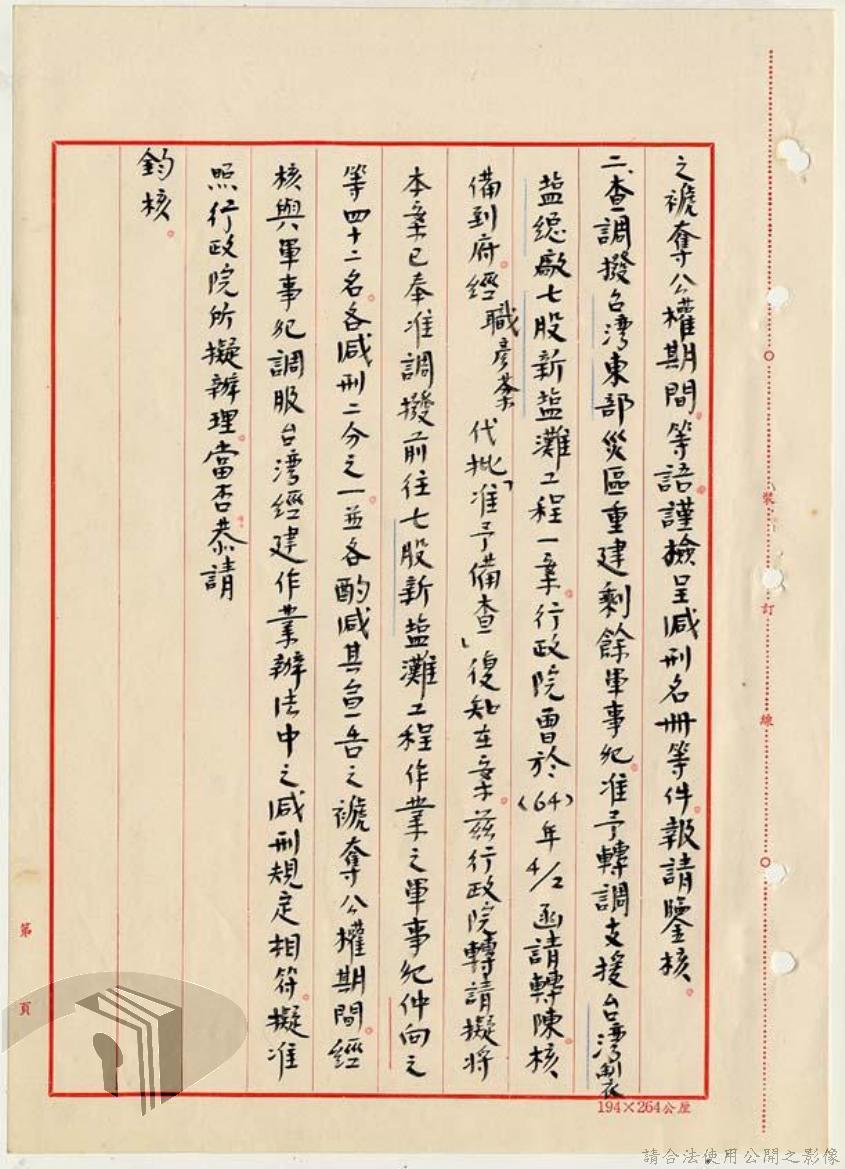 之褫奪公權期間。等語謹檢呈減刑名冊等件。報請鑒核。
二、查調撥台灣東部災區重建剩餘軍事犯。准予轉調支援台灣製
鹽總廠七股新鹽灘工程一案。行政院曾於(64)年4/2函請轉陳核
備到府。經職彥棻代批「准予備查」復知在案。茲行政院轉請擬將
本案已奉准調撥前往七股新鹽灘工程作業之軍事犯仲向之
等四十二名。各減刑二分之一。並各酌減其宣告之褫奪公權期間。經
核與軍事犯調服台灣經建作業辦法中之減刑規定相符。擬准
照行政院所擬辦理。當否。恭請
鈞核。
裝
訂
線
第 頁
194×264公厘
請合法使用公開之影像